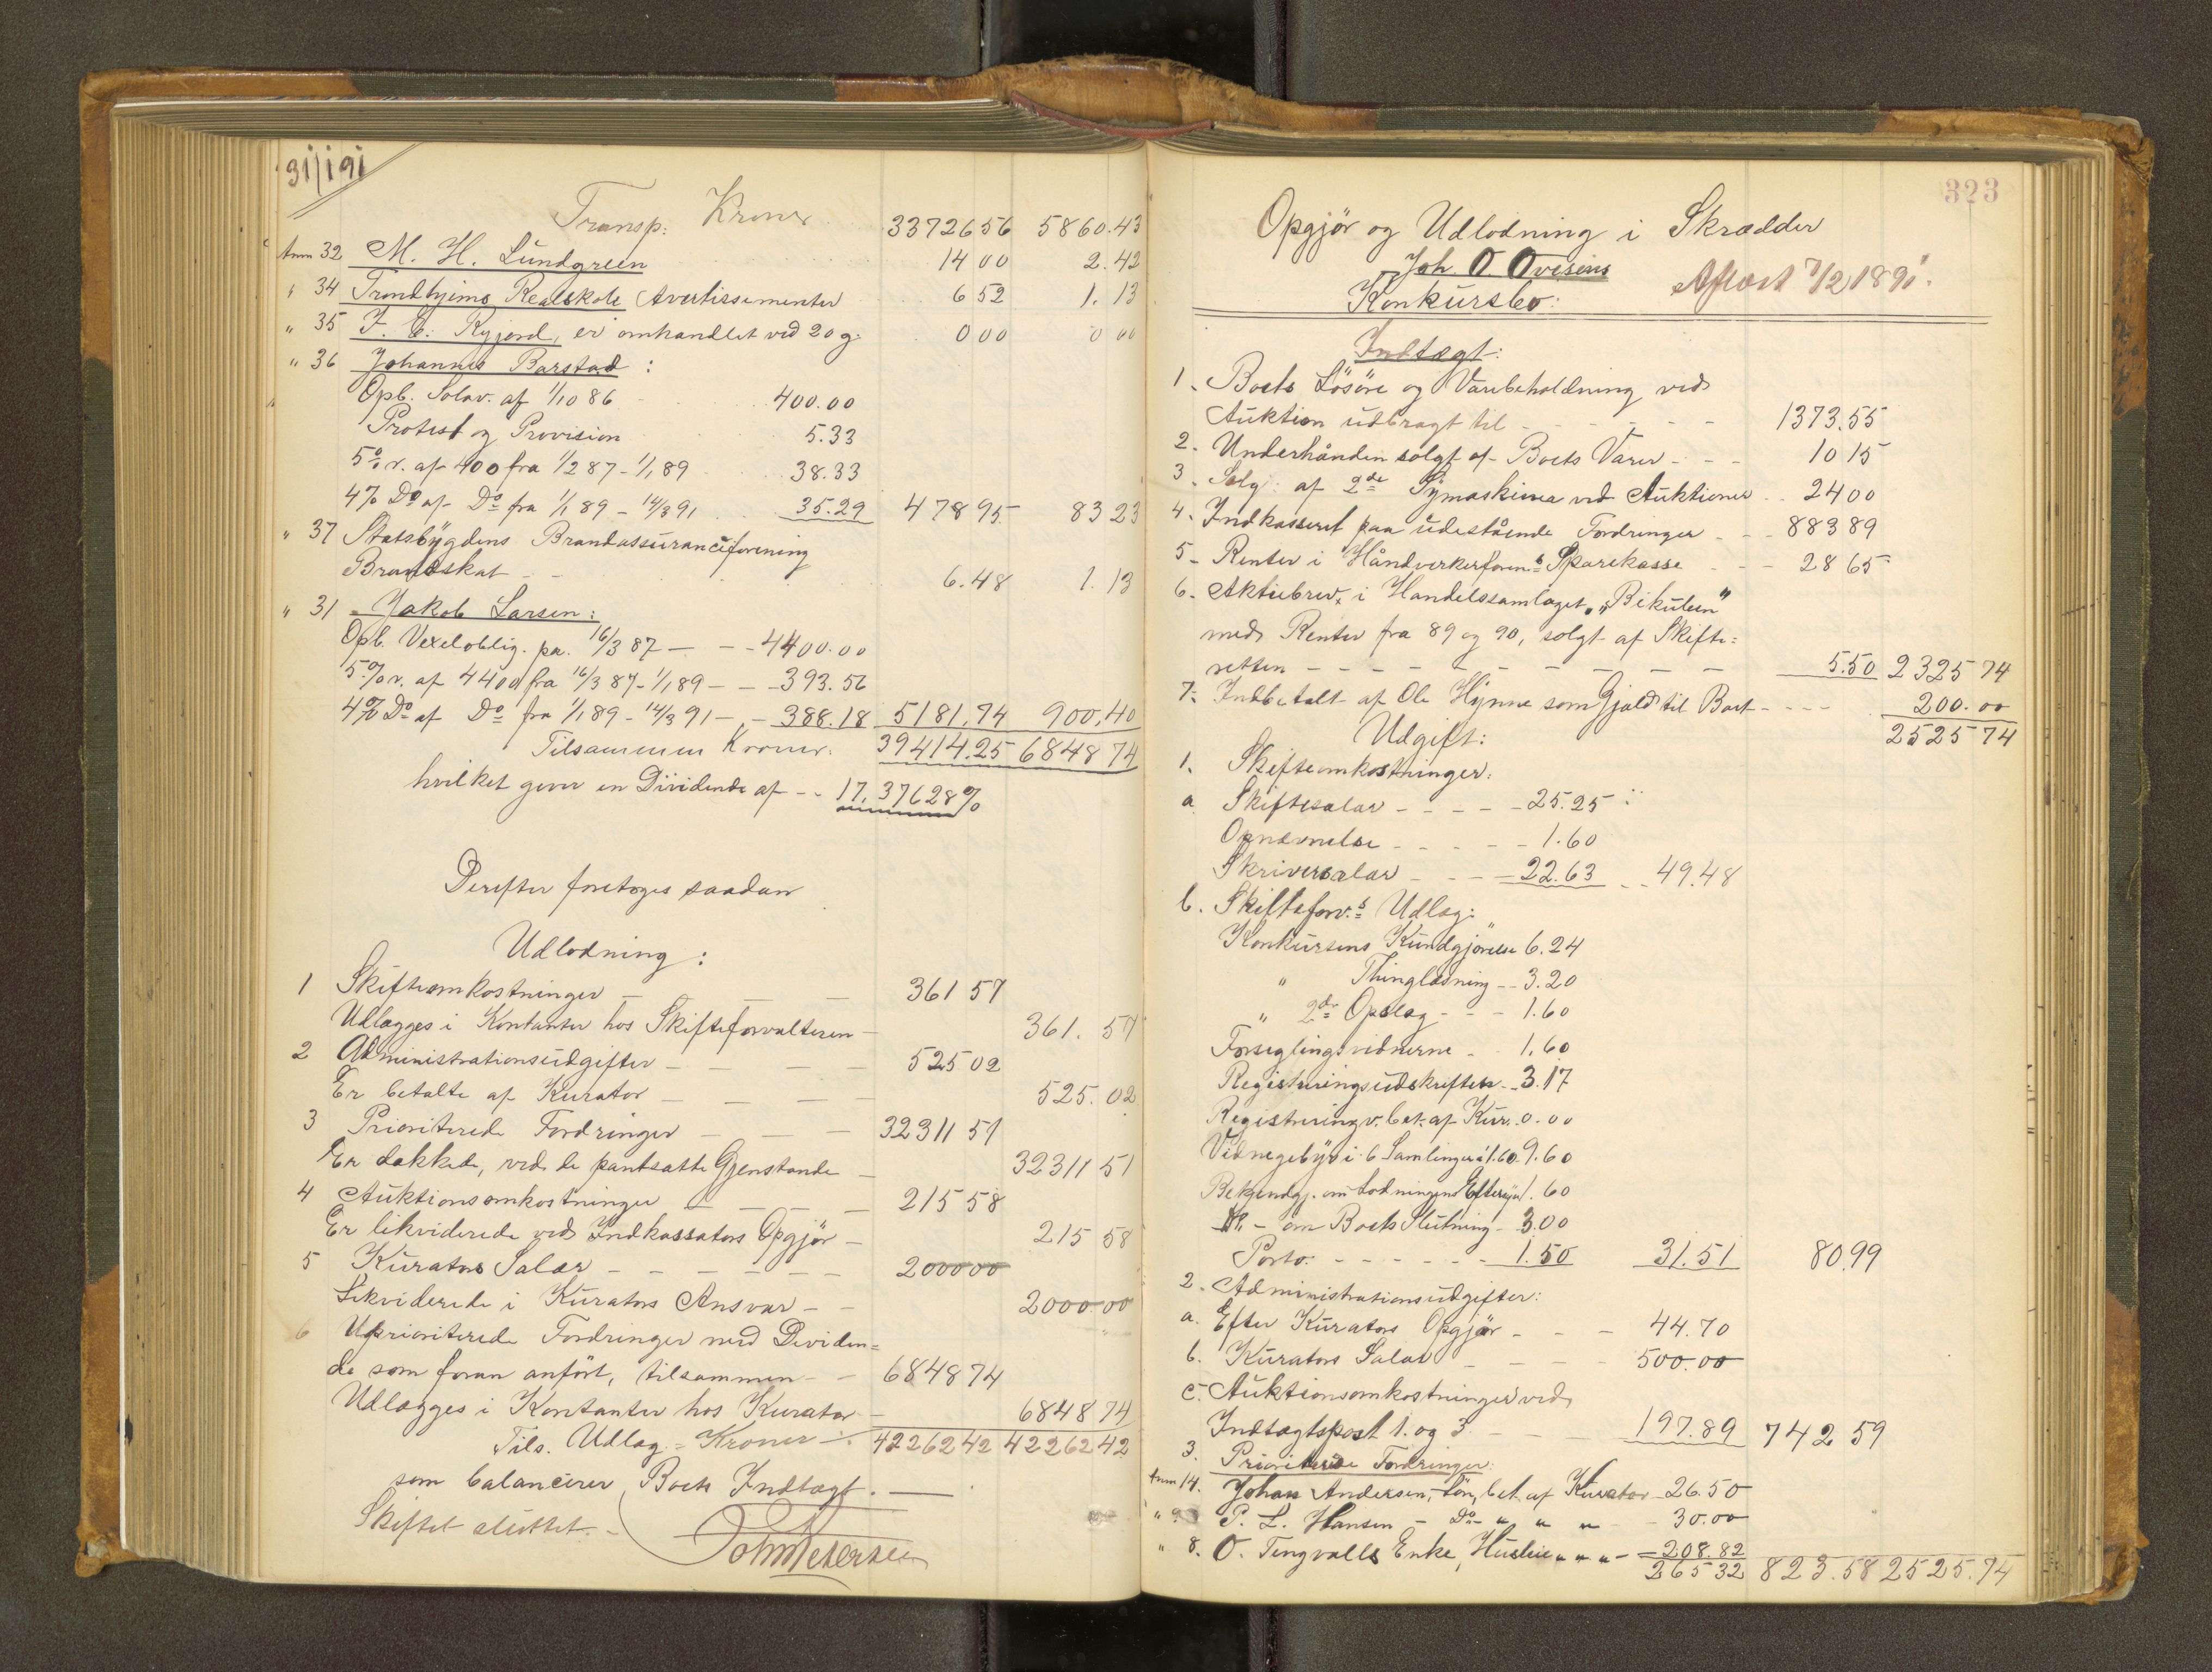 31/1 91
Transp: Kroner 33726 56 5860.43
Anm 32 M. H. Lundgreen 14 00 2.42
" 34 Trondhjems Realskole Avertissementer 6 52 1.13
" 35 F. C. Ryjord, er omhandlet ved 20 g. 0 00 0 00
" 36 Johannes Barstad :
Opb. Solav. af 1/10 86 400.00
Protest og Provision 5.33
5% r. af 400 fra 1/2 87 - 1/1 89 38.33
4% Do af Do fra 1/1 89 - 14/3 91 35.29 478 95 83 23
" 37 Statsbygdens Brandassuranceforening
Brandskat 6.48 1.13
" 31 Jakob Larsen:
Opb. Vexeloblig. pr. 16/3 87 - - - 4400.00
5% r. af 4400 fra 16/3 87 - 1/1 89 - - - 393.56
4% Do af Do fra 1/1 89 - 14/3 91 - - 388.18 5181.74 900.40
Tilsammen Kroner: 39414.25 6848 74
hvilket giver en Dividende af - - 17,37628%
Derefter foretoges saadan
Udlodning :
1 Skifteomkostninger - - - 361 57
Udlægges i Kontanter hos Skifteforvalteren - 361. 57
2 Administrationsudgifter - - - - 525 02
Er betalte af Kurator - - - - 525. 02
3 Prioriterede Fordringer - - - 32311 51
Er dækkede, ved de pantsatte Gjenstande - 32311 51
4 Auktionsomkostninger - - - - 215 58
Er likviderede ved Indkassators Opgjør - 215 58
5 Kurators Salær - - - - - - 2000 00
Likviderede i Kurators Ansvar - - 2000 00
6 Uprioriterede Fordringer med Dividen=
de som foran anført, tilsammen - - 6848 74
Udlægges i Kontanter hos Kurator - 6848 74
Tils. Udlæg = Kroner - : 42262 42 42262 42
som balancerer Boets Indtægt. -
Skiftet sluttet. -
323
Opgjør og Udlodning i Skrædder
Joh O Ovesens
Konkursbo: Aflæst 7/2 1891.
Indtægt:
1. Boets Løsøre og Varebeholdning ved
Auktion udbragt til - - - - - - 1373.55
2. Underhånden solgt af Boets Varer - - - 10 15
3. Salg af 2de Symaskiner ved Auktioner - - 24 00
4. Indkasseret paa udestående Fordringer - - - 883 89
5. Renter i Håndverkerforens Sparekasse - - - 28 65
6. Aktiebrev i Handelssamlaget "Bikuben"
med Renter fra 89 og 90, solgt af Skifte=
retten - - - - - - - - - 5.50 2325 74
7. Indbetalt af Ole Hynne som Gjæld til Boet - - - - 200.00
2525 74
Udgift:
1. Skifteomkostninger:
a. Skiftesalær - - - - - 25.25
Opnævnelse - - - - - 1.60
Skriversalær - - - 22.63 - - 49.48
b. Skifteforv.s Udlæg:
Konkursens Kundgjørelse 6.24
" Thinglæsning - - 3.20
" 2de Opslag - - - 1.60
Forseglingsvidnerne - - 1.60
Registreringsudskriften - - 3.17
Registrering v. bet. af Kur. 0.00
Vidnegebyr i 6 Samlinger á 1.60 9.60
Bekjendgj. om Lodningens Eftersyn 1.60
Do - om Boets Slutning - 3.00
Porto - - - - - - 1.50 31.51 80.99
2. Administrationsudgifter:
a. Efter Kurators Opgjør - - - 44.70
b. Kurators Salær - - - - 500.00
c. Auktionsomkostninger ved
Indtægtspost 1. og 3. - - - 197.89 742 59
3. Prioriterede Fordringer:
Anm 14. Johan Andersen, Løn, bet. af Kurator 26.50
" 9. P. L. Hansen - Do - " " " - 30.00
" 8. O. Tingvalls Enke, Husleie " " " - 208.82
265 32 823.58 2525.74